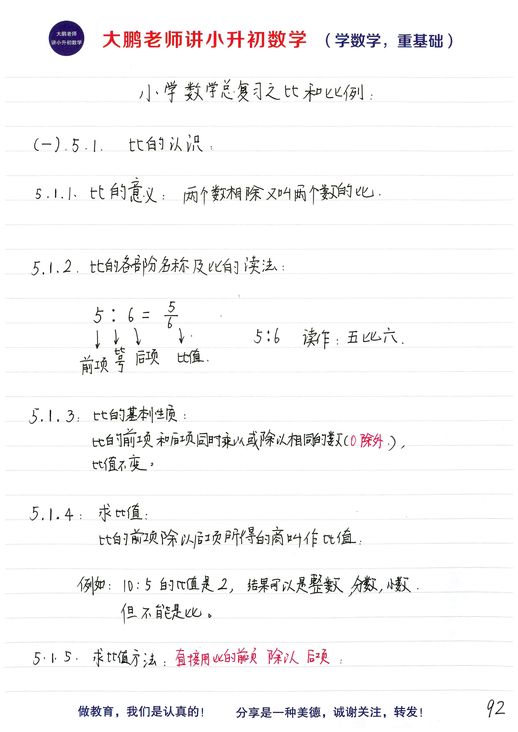 大鹏老师
讲小升初数学
大鹏老师讲小升初数学 （学数学，重基础）
小学数学总复习之比和比例：
(一).5.1. 比的认识：
5.1.1. 比的意义：两个数相除又叫两个数的比.
5.1.2. 比的各部分名称及比的读法：
5 : 6 = 5/6
↓ ↓ ↓ ↓
前项 比号 后项 比值.
5:6 读作：五比六.
5.1.3: 比的基本性质：
比的前项和后项同时乘以或除以相同的数(0除外)，
比值不变。
5.1.4: 求比值：
比的前项除以后项所得的商叫作比值.
例如：10:5的比值是2，结果可以是整数,分数,小数.
但不能是比。
5.1.5. 求比值方法：直接用比的前项 除以 后项：
做教育，我们是认真的！ 分享是一种美德，诚谢关注，转发！
92